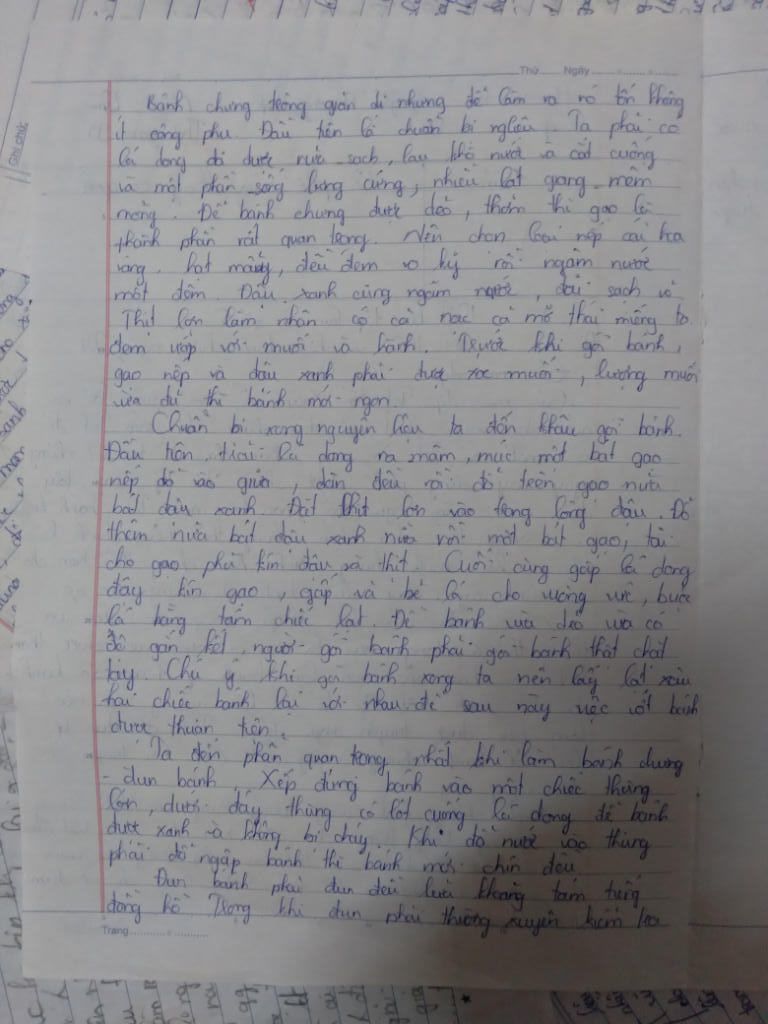 Thứ Ngày
Ghi chú:
Bánh chưng trông giản dị nhưng để làm ra nó tốn không
ít công phu. Đầu tiên là chuẩn bị ngliệu. Ta phải có
lá dong đã được rửa sạch, lau khô nước và cắt cuống
và một phần sống lưng cứng, nhiều lạt giang mềm
mỏng. Để bánh chưng được dẻo, thơm thì gạo là
thành phần rất quan trọng. Nên chọn loại nếp cái hoa
vàng, hạt mẩy, đều đem vo kỹ rồi ngâm nước
một đêm. Đậu xanh cũng ngâm nước, đãi sạch vỏ
Thịt lợn làm nhân có cả nạc cả mỡ thái miếng to
đem ướp với muối và hành. Trước khi gói bánh,
gạo nếp và đậu xanh phải được xóc muối, lượng muối
vừa đủ thì bánh mới ngon.
Chuẩn bị xong nguyên liệu ta đến khâu gói bánh.
Đầu tiên, trải lá dong ra mâm, múc một bát gạo
nếp đổ vào giữa, dàn đều rồi đổ trên gạo nửa
bát đậu xanh. Đặt thịt lợn vào trong lòng đậu. Đổ
thêm nửa bát đậu xanh nữa rồi một bát gạo,
cho gạo phủ kín đậu và thịt. Cuối cùng gấp lá dong
đậy kín gạo, gấp và bẻ lá cho vuông vức, buộc
lá bằng tám chiếc lạt. Để bánh vừa dẻo vừa có
độ gắn kết, người gói bánh phải gói bánh thật chặt
tay. Chú ý khi gói bánh xong ta nên lấy lạt xâu
hai chiếc bánh lại với nhau để sau này việc vớt bánh
được thuận tiện.
Ta đến phần quan trọng nhất khi làm bánh chưng
- đun bánh. Xếp đứng bánh vào một chiếc thùng
lớn, dưới đáy thùng có lót cuống lá dong để bánh
được xanh và không bị cháy. Khi đổ nước vào thùng
phải đổ ngập bánh thì bánh mới chín đều
Đun bánh phải đun đều lửa khoảng tám tiếng
đồng hồ. Trong khi đun phải thường xuyên kiểm tra
Trang